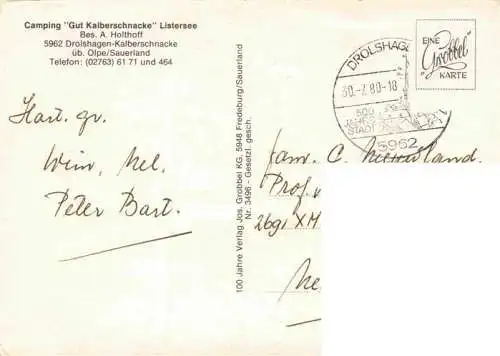 Camping "Gut Kalberschnacke" Listersee
Bes. A. Holthoff
5962 Drolshagen-Kalberschnacke
üb. Olpe/Sauerland
Telefon: (02763) 61 71 und 464
Hart. gr.
Wim, Nel.
Peter Bart.
100 Jahre Verlag Jos. Grobbel KG. 5948 Fredeburg/Sauerland
Nr. 3496 - Gesetzl. gesch.
DROLSHAG
30.-7.80-18
500
JAH
STADT
5962
EINE
Grobbel
KARTE
fam. C.
Prof.
2691 XM